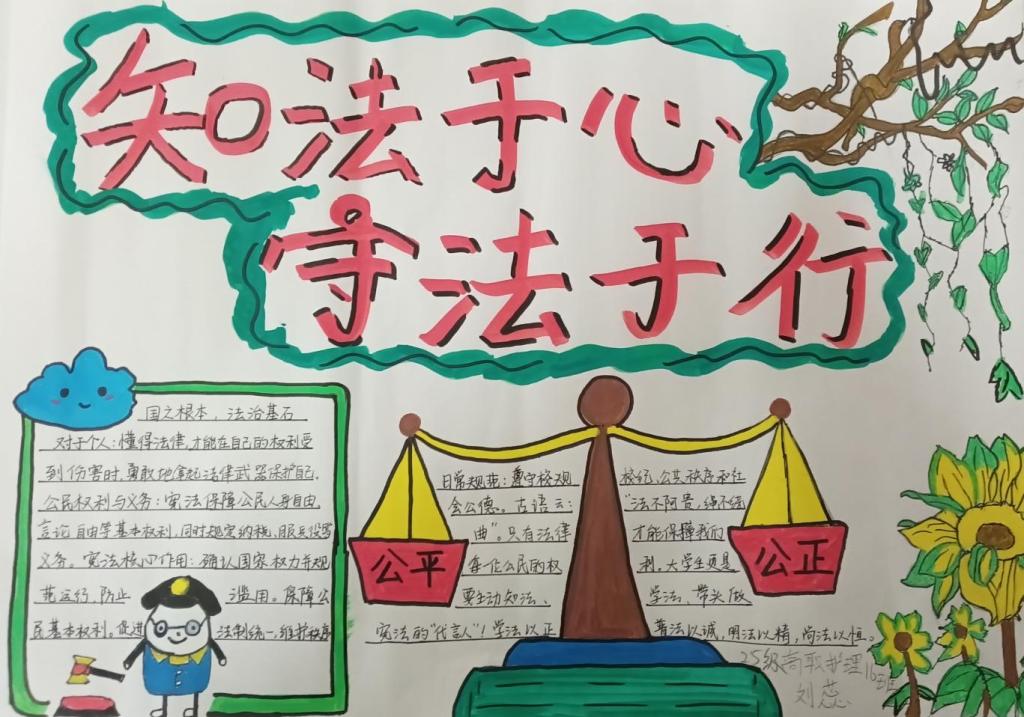 知法于心
守法于行
国之根本，法治基石
对于个人：懂得法律，才能在自己的权利受
到伤害时，勇敢地拿起法律武器保护自己。
公民权利与义务：宪法保障公民人身自由、
言论自由等基本权利，同时规定纳税、服兵役等
义务。宪法核心作用：确认国家权力并规
范运行，防止 滥用。保障公
民基本权利。促进 法制统一，维护秩序
公平
公正
日常规范：遵守校规 校纪、公共秩序和社
会公德。古语云： “法不阿贵，绳不绕
曲”。只有法律 才能保障我们
每一位公民的权 利。大学生更是
要主动知法、 学法、带头做
宪法的“代言人”！学法以正 普法以诚，用法以精，尚法以恒。
25级高职护理16班
刘蕊